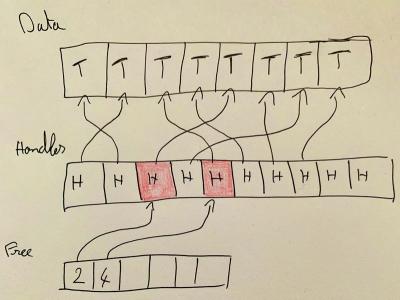 Data
T T T T T T T T
Handles
H H H H H H H H H H
Free
2 4